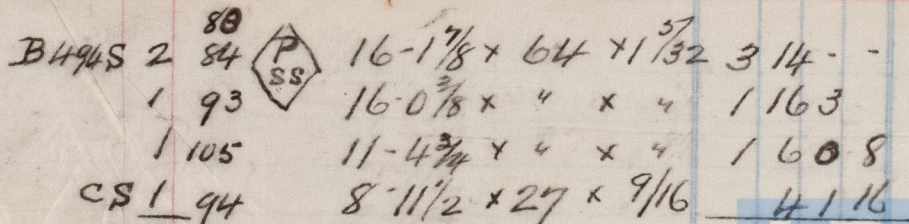 80
B494S 2 84 P SS 16-1 7/8 x 64 x 1 5/32 3 14 - -
1 93 16-0 3/8 x " x " 1 16 3
1 105 11-4 3/4 x " x " 1 6 0 8
CS 1 94 8-11 1/2 x 27 x 9/16 4 1 16